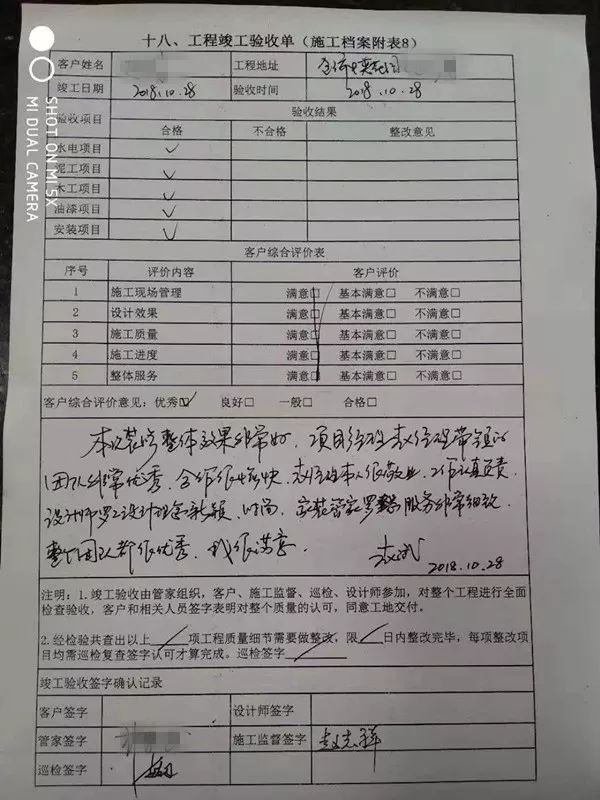 十八、工程竣工验收单（施工档案附表8）
客户姓名 工程地址
竣工日期 2018.10.28 验收时间 2018.10.28
验收项目 验收结果
合格 不合格 整改意见
水电项目 ✓
泥工项目 ✓
木工项目 ✓
油漆项目 ✓
安装项目 ✓
客户综合评价表
序号 评价内容 客户评价
1 施工现场管理 满意□ 基本满意□ 不满意□
2 设计效果 满意□ 基本满意□ 不满意□
3 施工质量 满意□ 基本满意□ 不满意□
4 施工进度 满意□ 基本满意□ 不满意□
5 整体服务 满意□ 基本满意□ 不满意□
客户综合评价意见：优秀☑ 良好□ 一般□ 合格□
本次装修整体效果非常好，项目经理赵经理带领的
团队非常优秀，合作很愉快，赵经理本人很敬业，工作认真负责，
设计师罗工设计理念新颖、时尚，家装管家罗 服务非常细致，
整个团队都很优秀，我很满意
2018.10.28
注明：1.竣工验收由管家组织，客户、施工监督、巡检、设计师参加，对整个工程进行全面
检查验收，客户和相关人员签字表明对整个质量的认可，同意工地交付。
2.经检验共查出以上 项工程质量细节需要做整改，限 日内整改完毕，每项整改项
目均需巡检复查签字认可才算完成。巡检签字
竣工验收签字确认记录
客户签字 设计师签字
管家签字 施工监督签字 赵志祥
巡检签字
SHOT ON MI 5X
MI DUAL CAMERA